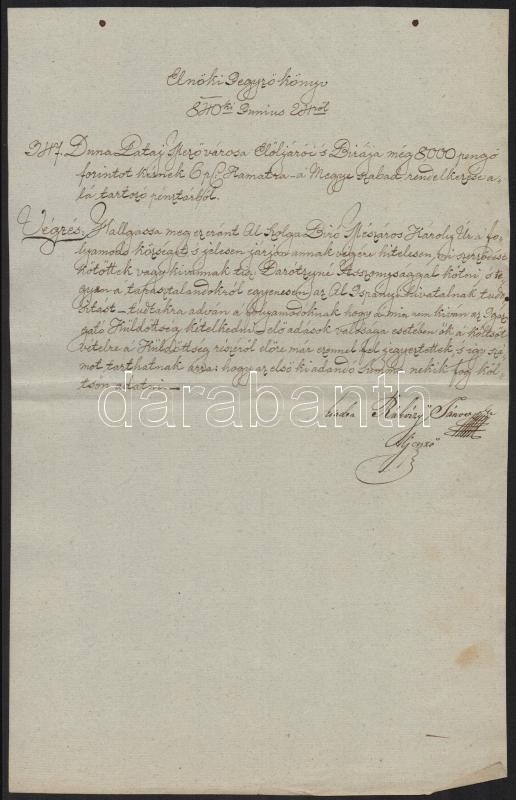 Elnöki Jegyzö könyv
840ki Junius 24ről
347. Duna Pataj Mező városa Elöljárói s Birája még 8000 pengő
forintot kérnek 6 p C Kamatra – a Megye szabad rendelkezése a-
lá tartozó pénztárból.
Végzés, Hallgassa meg ez eránt Al Szolga Biró Mészáros Károly Úr a fo-
lyamodó községet s jelesen járjon annak végére hitelesen, mi szerződést
kötöttek vagy kivannak Asszonysággal kötni s te-
gyen a tapasztalandókról egyenesen az Al Ispányi hivatalnak tudó-
sitást – tudtokra adván a folyamodóknak hogy
Küldöttség kételkedni – elö adások valósága esetében ők a költsön
vételre a Küldöttség részéről előre már ezennel fel jegyeztettek s így szá-
mot tarthatnak arra: hogy az első ki adandó Summa nékik fog köl-
tsön adatni. –
kiadta
Al jegyző
darabanth